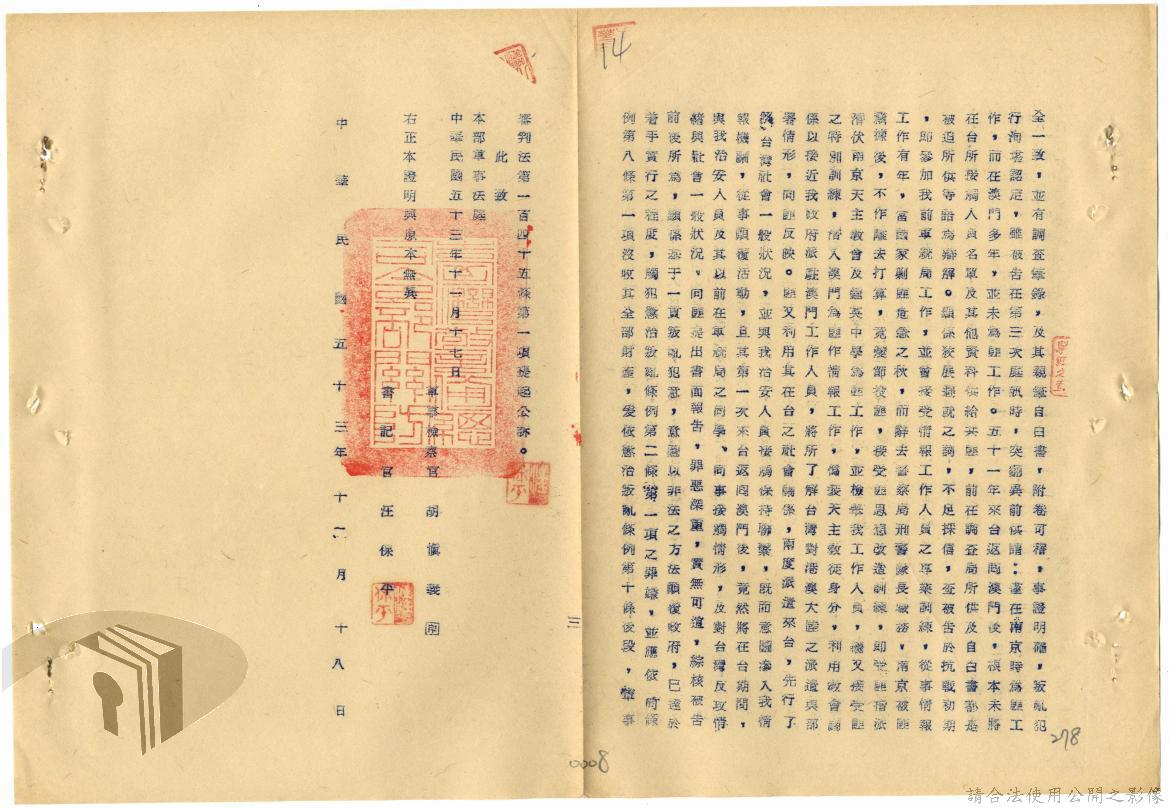 14
全一致，並有調查筆錄，及其親繕自白書，附卷可稽，事證明確，叛亂犯
行洵堪認定，雖被告在第三次庭訊時，突翻異前供謂：僅在南京時為匪工
作，而在澳門多年，並未為匪工作。五十一年來台返回澳門後，根本未將
在台所接觸人員名單及其他資料供給共匪，前在調查局所供及自白書都是
被迫所供等語為辯解。顯係狡展避就之詞，不足採信，查被告於抗戰初期
，即參加我前軍統局工作，並曾接受情報工作人員之專業訓練，從事情報
工作有年，當國家剿匪危急之秋，而辭去警察局刑警隊長職務，南京被匪
竊據後，不作離去打算，竟變節投匪，接受匪思想改造訓練，即受匪指派
潛伏南京天主教會及 英中學為匪工作，並檢舉我工作人員，繼又接受匪
之特別訓練，潛入澳門為匪作情報工作，偽裝天主教徒身分，利用教會關
係以接近我政府派駐澳門工作人員，將所了解台灣對港澳大陸之派遣與部
署情形，向匪反映。匪又利用其在台之社會關係，兩度派遣來台，先行了
解台灣社會一般狀況，並與我治安人員接觸保持聯繫，既而意圖滲入我情
報機關，從事顛覆活動，且其第一次來台返回澳門後，竟然將在台期間，
與我治安人員及其以前在軍統局之同學、同事接觸情形，及對台灣反攻情
緒與社會一般狀況，向匪提出書面報告，罪惡深重，實無可逭，綜核被告
前後所為，顯係基于一貫叛亂犯意，意圖以非法之方法顛覆政府，已達於
着手實行之程度，觸犯懲治叛亂條例第二條第一項之罪嫌，並應依同條
例第八條第一項沒收其全部財產，爰依懲治叛亂條例第十條後段，軍事
278
三
審判法第一百四十五條第一項提起公訴。
此致
本部軍事法庭
中華民國五十三年十一月十七日
軍事檢察官 胡 義
右正本證明與原本無異
書記官 汪保平
中華民國五十三年十二月十八日
0008
請合法使用公開之影像